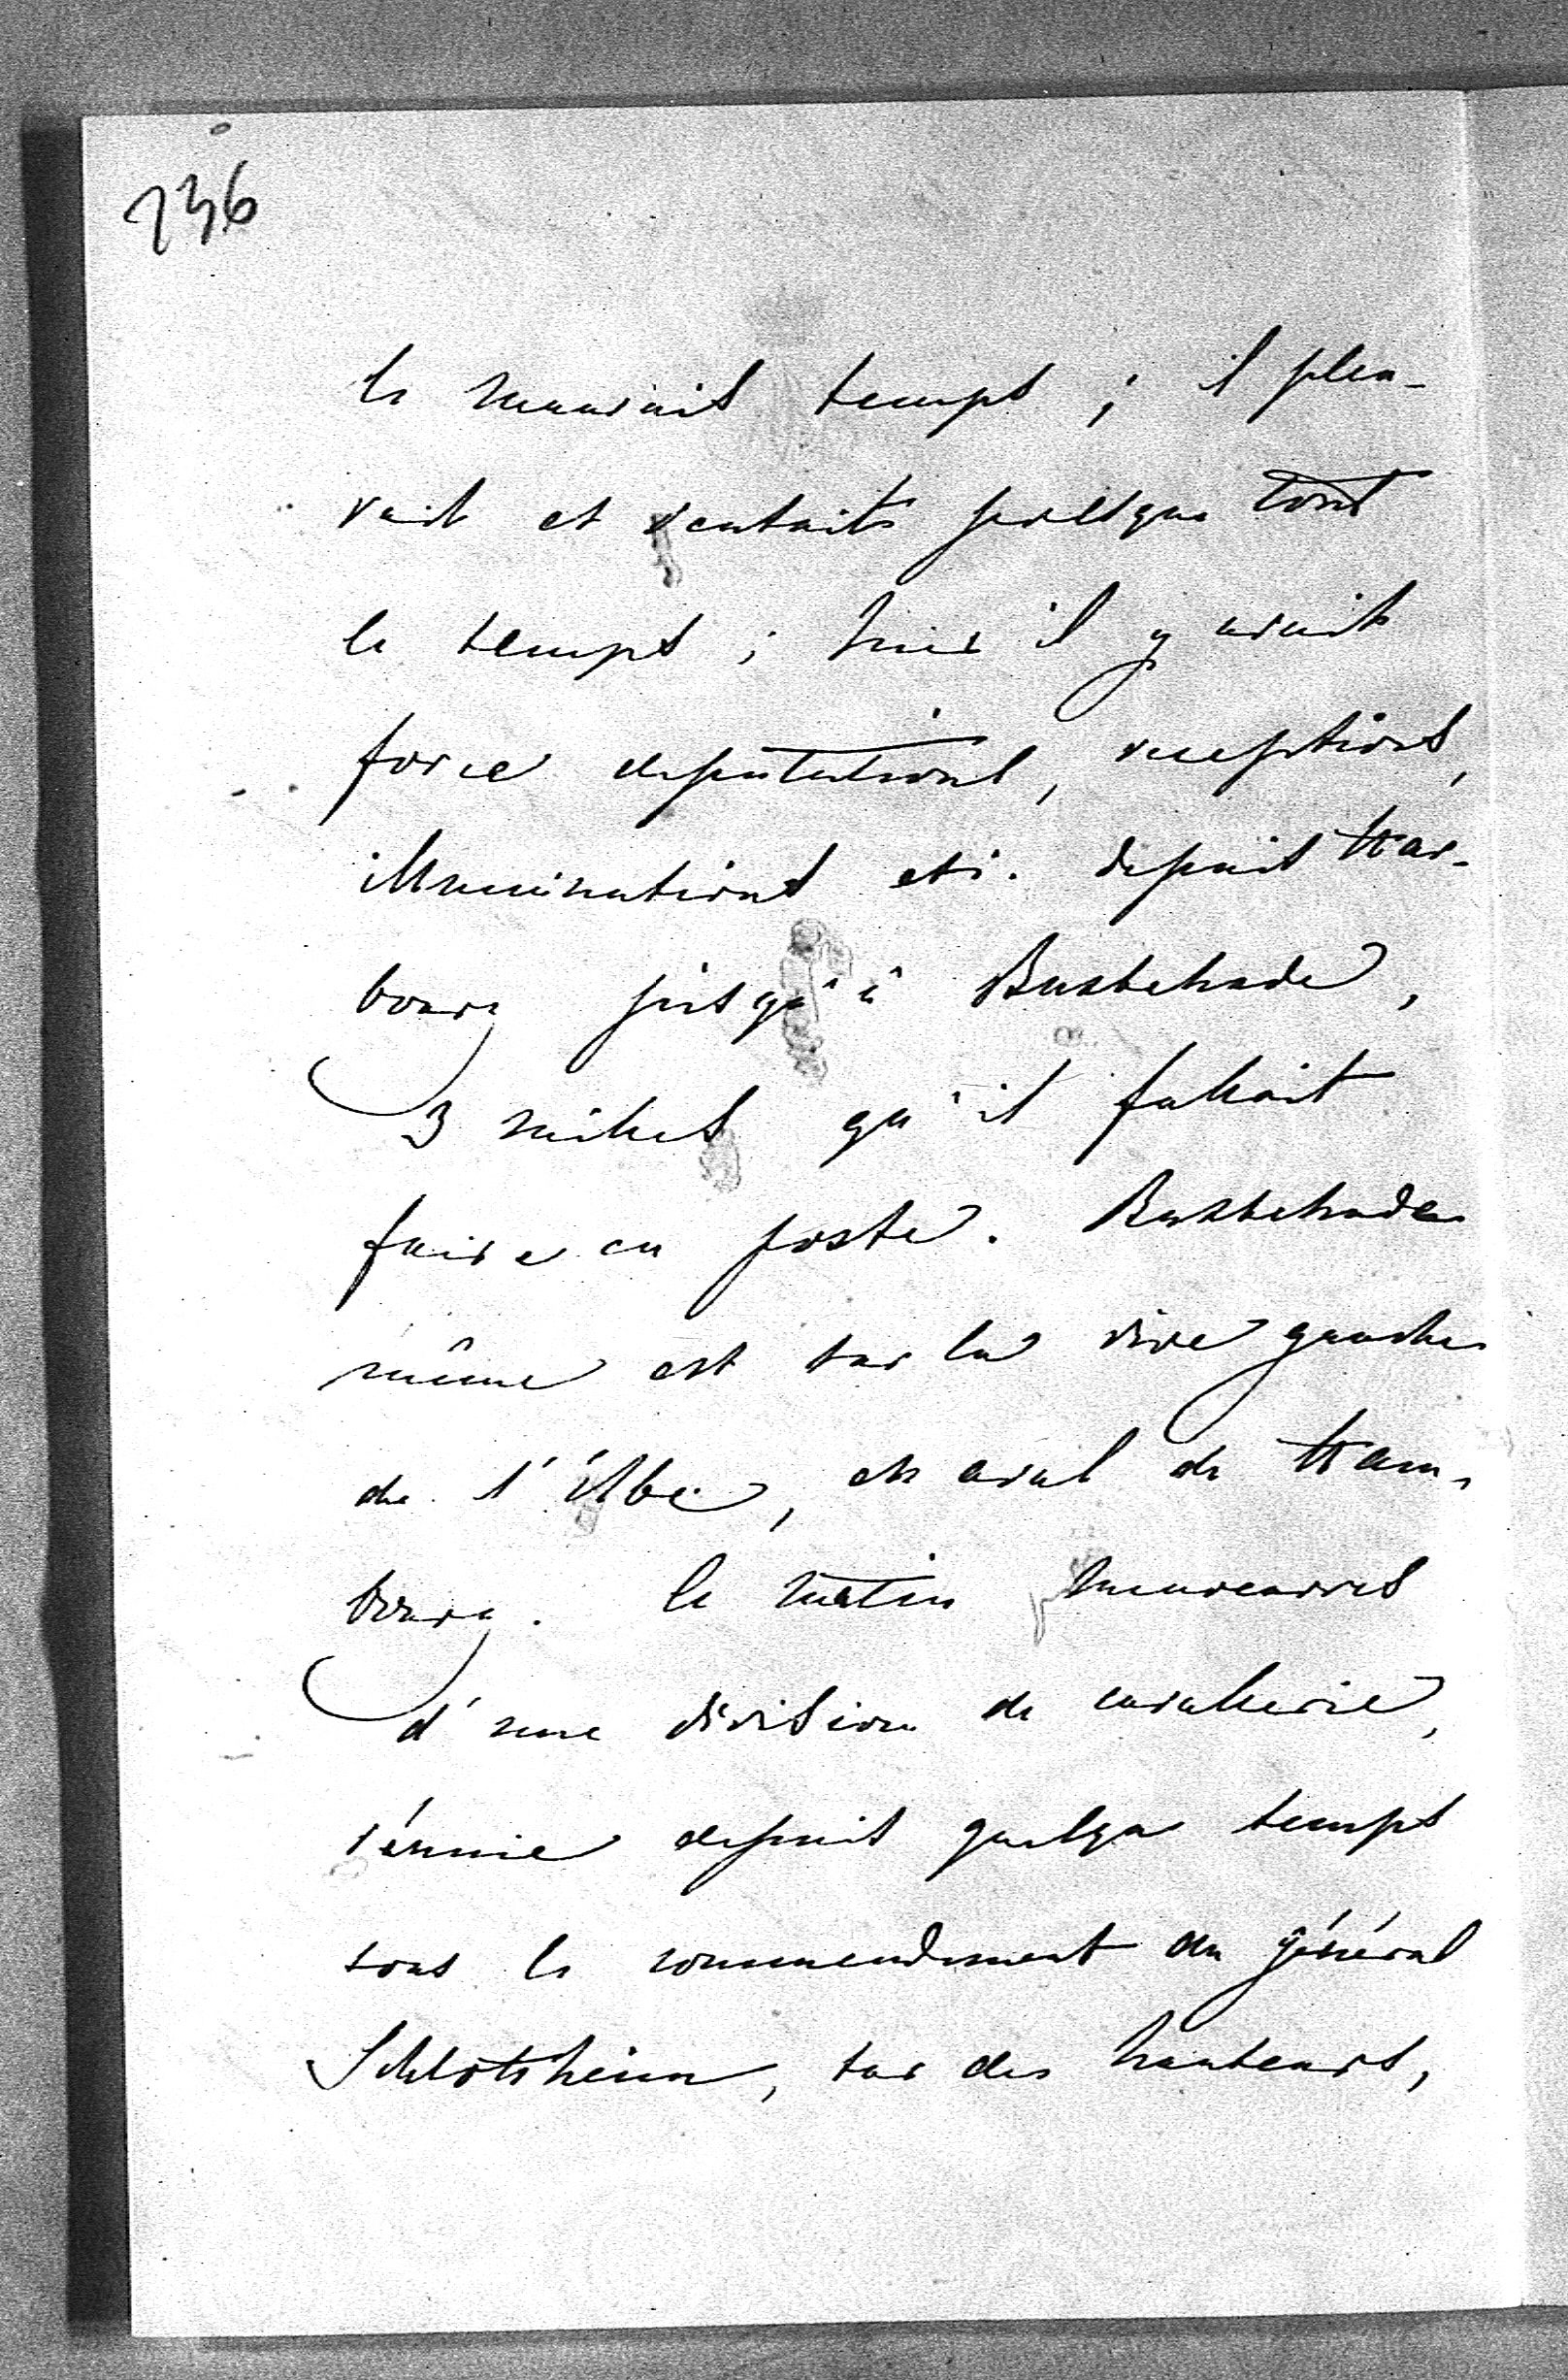 236
le mauvais temps ; il pleu-
vait et ventait presque tout
le temps ; hier il y avait
force députations, receptions,
illuminations etc. depuis Har-
bourg jusqu'à Buxtehude,
3 milles qu'il fallait
faire en poste. Buxtehude
même est sur la rive gauche
de l'Elbe, en aval de Ham-
bourg. le matin manoeuvres
d'une division de cavallerie,
réunie depuis quelque temps
sous le commendement du général
Schlotheim, sur des hauteurs,